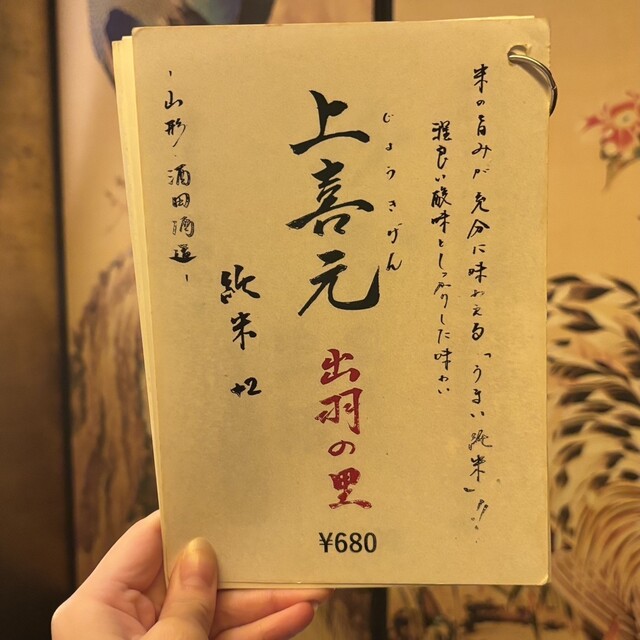 米の旨みが充分に味わえる「うまい純米」!!
程良い酸味としっかりした味わい
じょうきげん
上喜元
出羽の里
¥680
純米 +2
-山形・酒田酒造-